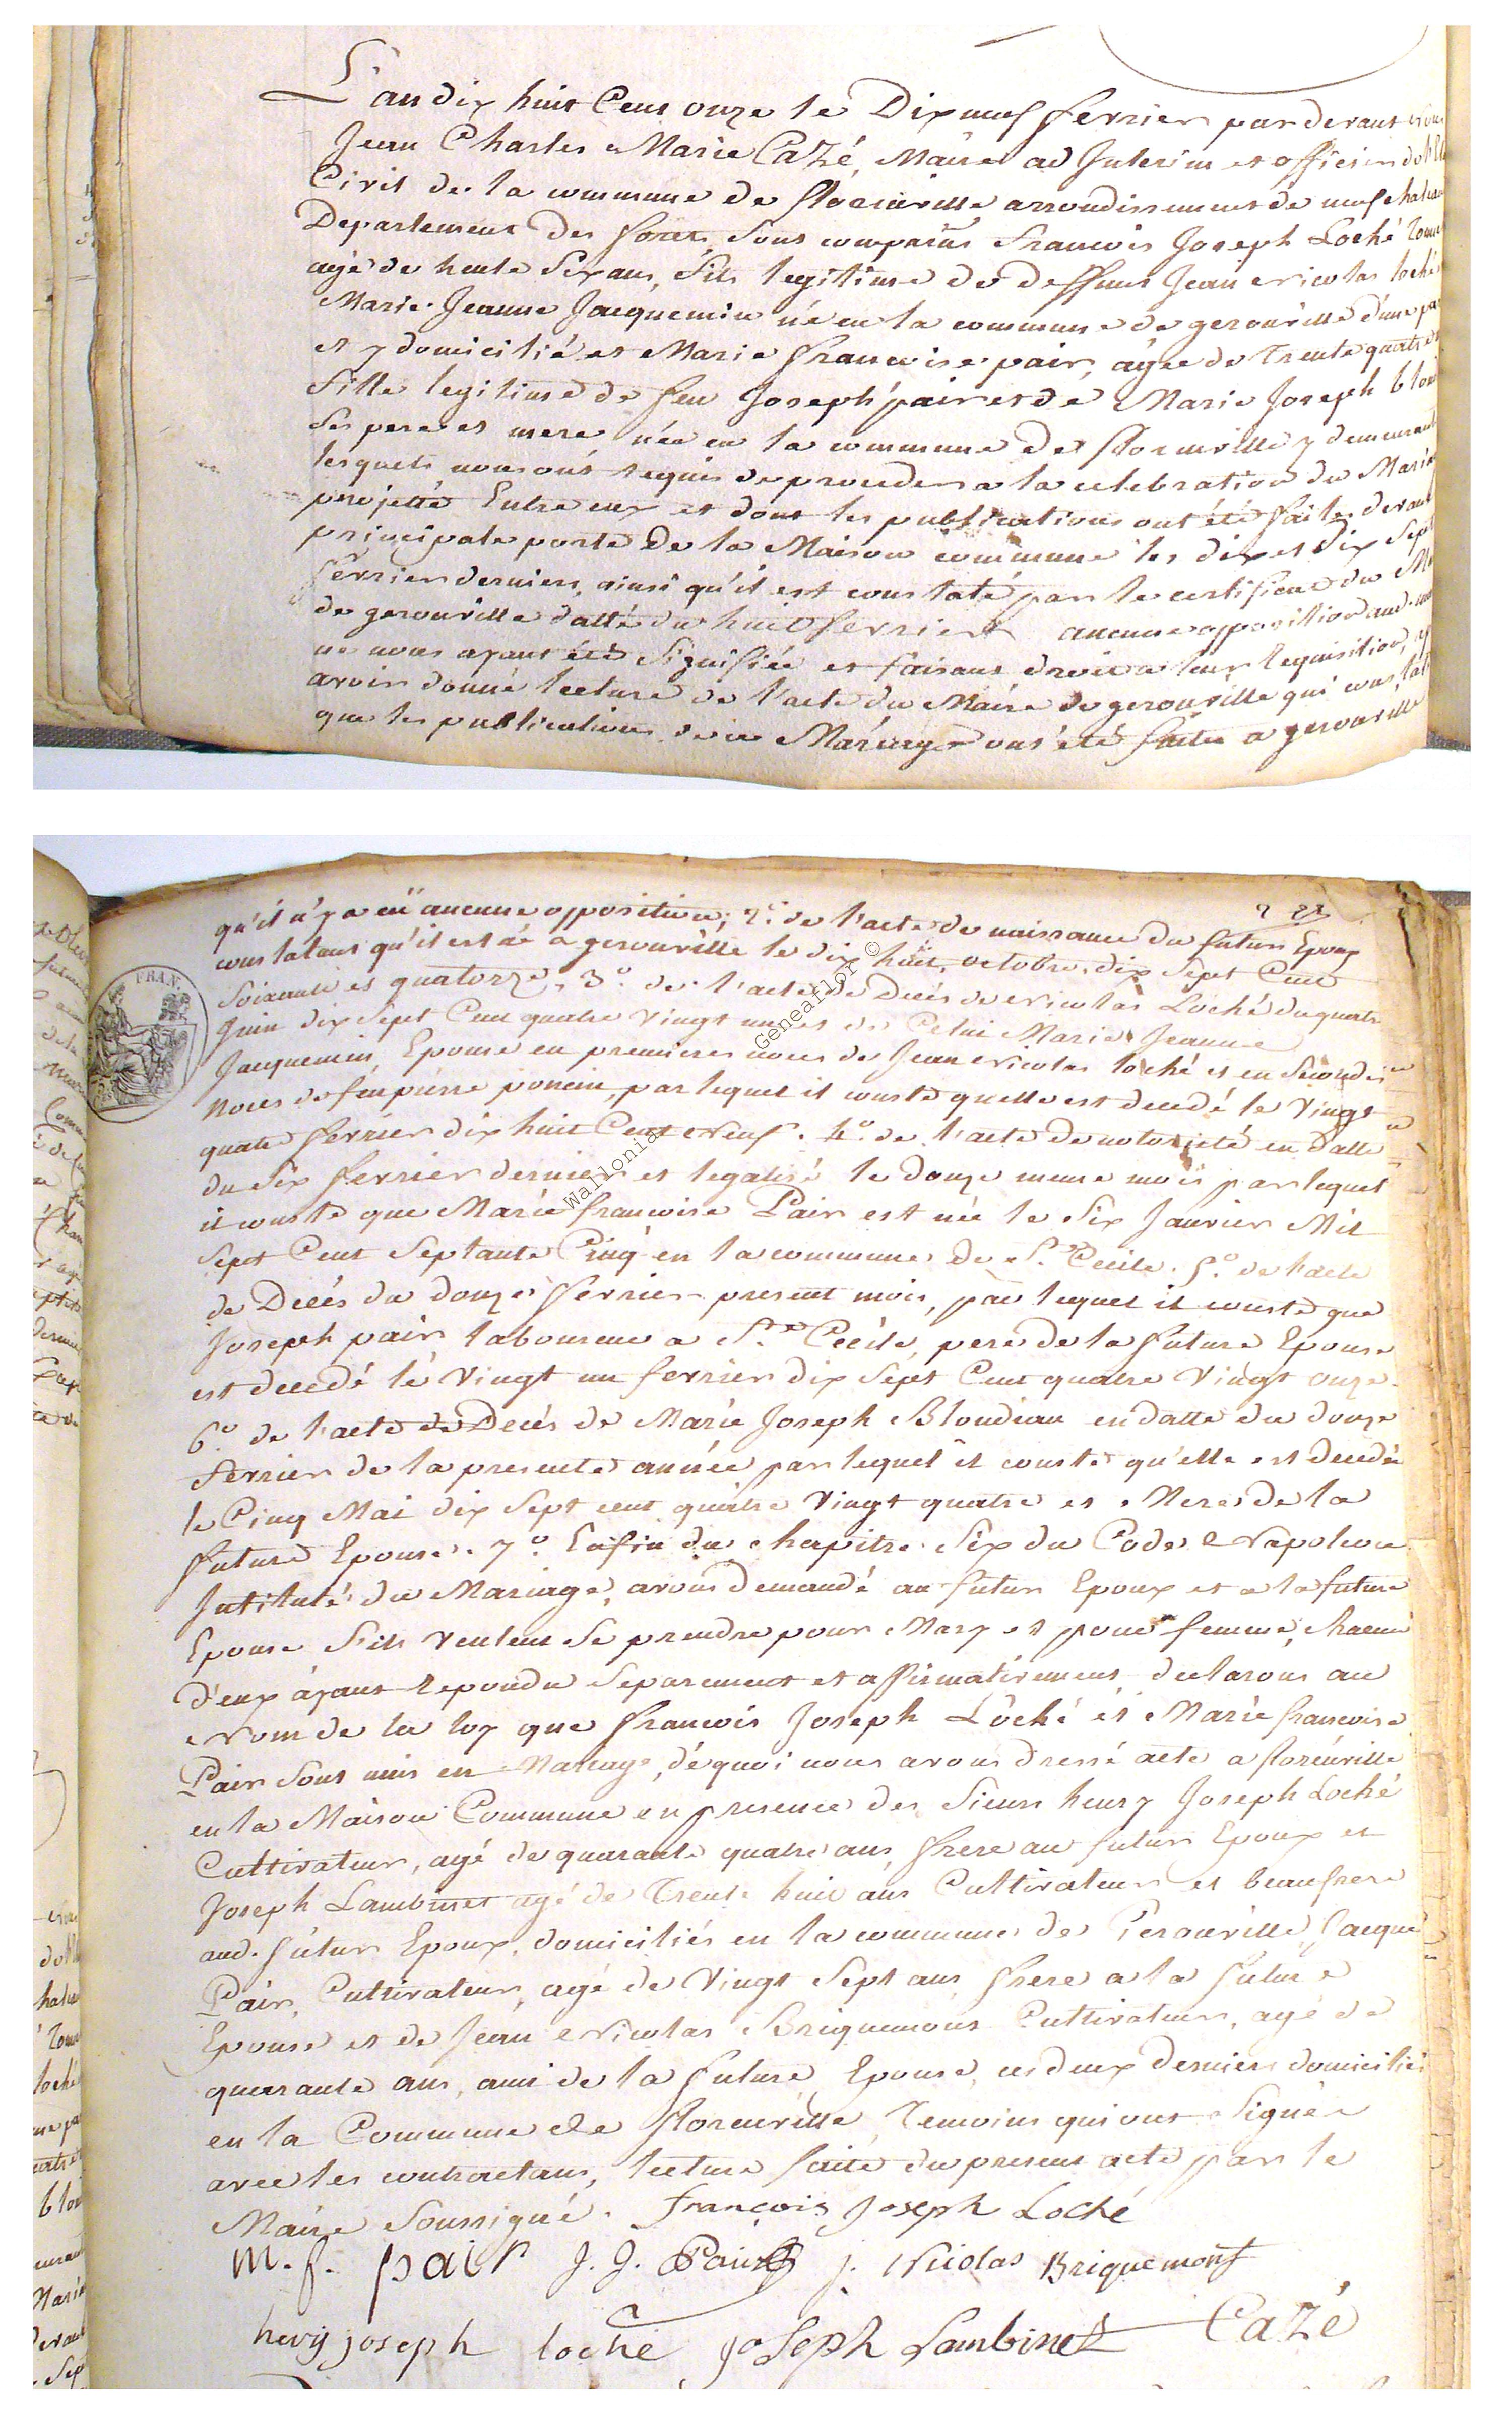 L'an dix huit Cent onze le Dix neuf fevrier par devant nous
Jean Charles Marie Cazé, Maire ad Interim et officier de l'Et
Civil de la commune de florenville arrondissement de neufchateau
Departement des forets, sont comparus francois Joseph Loché
agé de trente six ans, fils legitime de deffunt Jean Nicolas loché
Marie Jeanne Jacquemin né en la commune de gerouville d'une pa
et y domicilié et Marie francoise pair, agée de Trente quatre
fille legitime de feu Joseph pair et de Marie Joseph blon
ses pere et mere née en la commune de florenville y demeurant
lesquels nous ont requis de proceder a la celebration du Maria
projetté Entre eux et dont les publications ont été faites devant
principale porte de la Maison commune les dix et dix sept
fevrier derniers, ainsi qu'il est constaté par le certificat du M
de gerouville datté du huit fevrier aucune opposition aud.
ne nous ayant été signifiée et faisant droit a leur requisition,
avoir donné lecture de l'acte du Maire de gerouville qui constat
que les publications de ce Mariage ont été faites a gerouville
qu'il n'y a eü aucune opposition; 2.° de l'acte de naissance du futur Epoux
constatant qu'il est né a gerouville le dix huit octobre dix sept Cent
FRAN.
soixante et quatorze, 3.° de l'acte de Decés de Nicolas Loché du quatre
Juin dix sept Cent quatre vingt un et de Celui Marie Jeanne
Jacquemin Epouse en premieres noces de Jean Nicolas loché et en secondes
noces de feu pierre poncin, par lequel il conste quelle est decedé le vingt
quatre fevrier dix huit Cent Neuf. 4.° de l'acte de notorieté en datte
du six fevrier dernier et legalisé le douze meme mois par lequel
il conste que Marie francoise Pair est née le six Janvier Mil
sept Cent septante Cinq en la commune de S.te Cecile. 5.° de l'acte
de Decés du douze fevrier present mois, par lequel il conste que
Joseph pair laboureur a S.te Cecile, pere de la future Epouse
est decedé le vingt un fevrier dix sept Cent quatre vingt onze.
6.° de l'acte de Decés de Marie Joseph Blondiau en datte du douze
fevrier de la presente année par lequel il conste qu'elle est decedée
le Cinq Mai dix sept cent quatre vingt quatre et Mere de la
future Epouse. 7.° Enfin du chapitre six du Code Napoleon
Intitulé du Mariage, avons demandé au futur Epoux et a la future
Epouse s'ils veulent se prendre pour Mary et pour femme, chacun
d'eux ayant repondu separement et affirmativement, declarons au
Nom de la loy que francois Joseph Lôché et Marie francoise
Pair sont unis en Mariage, de quoi nous avons dressé acte a florenville
en la Maison Commune en presence des sieurs henry Joseph Loché
Cultivateur, agé de quarante quatre ans, frere au futur Epoux et
Joseph Lambinet agé de Trente huit ans Cultivateur et beaufrere
aud. futur Epoux, domiciliés en la commune de Gerouville, Jacque
Pair, Cultivateur, agé de Vingt sept ans, frere a la future
Epouse et de Jean Nicolas Briquemont Cultivateur, agé de
quarante ans, ami de la future Epouse, ces deux derniers domiciliés
en la Commune de florenville, Temoins qui ont signés
avec les contractans, lecture faite du present acte par le
Maire Soussigné. françois Joseph Loché
m. f. pair J. J. Pair j. Nicolas Briquemont
henry joseph loché joseph Lambinet Cazé
Wallonia Geneaflor ©